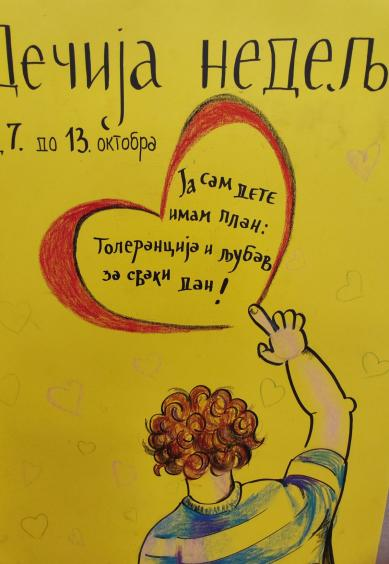 Дечија недељ
7. до 13. октобра
Ја сам дете
имам план:
Толеранција и љубав
за сваки дан!